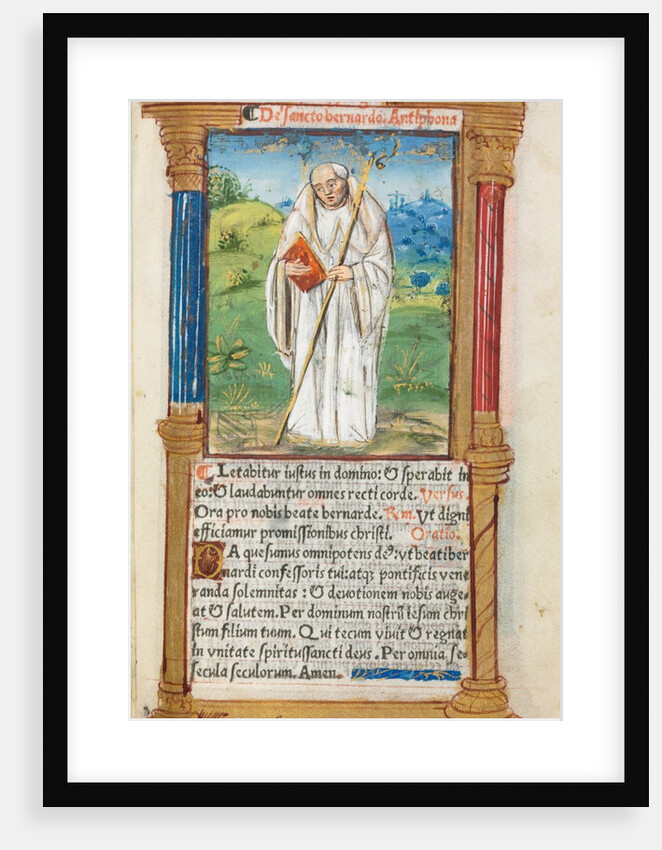 ☾ De sancto bernardo. Antiphona
☾ Letabitur iustus in domino: & sperabit in
eo: & laudabuntur omnes recti corde. Versus.
Ora pro nobis beate bernarde. Rm. Vt digni
efficiamur promissionibus christi. Oratio.
DA quesumus omnipotens deꝰ: vt beati ber
nardi confessoris tui: atqꝫ pontificis vene
randa solemnitas: & deuotionem nobis auge-
at & salutem. Per dominum nostrū iesum chri
stum filium tuum. Qui tecum viuit & regnat
in vnitate spiritussancti deus. Per omnia se-
secula seculorum. Amen.